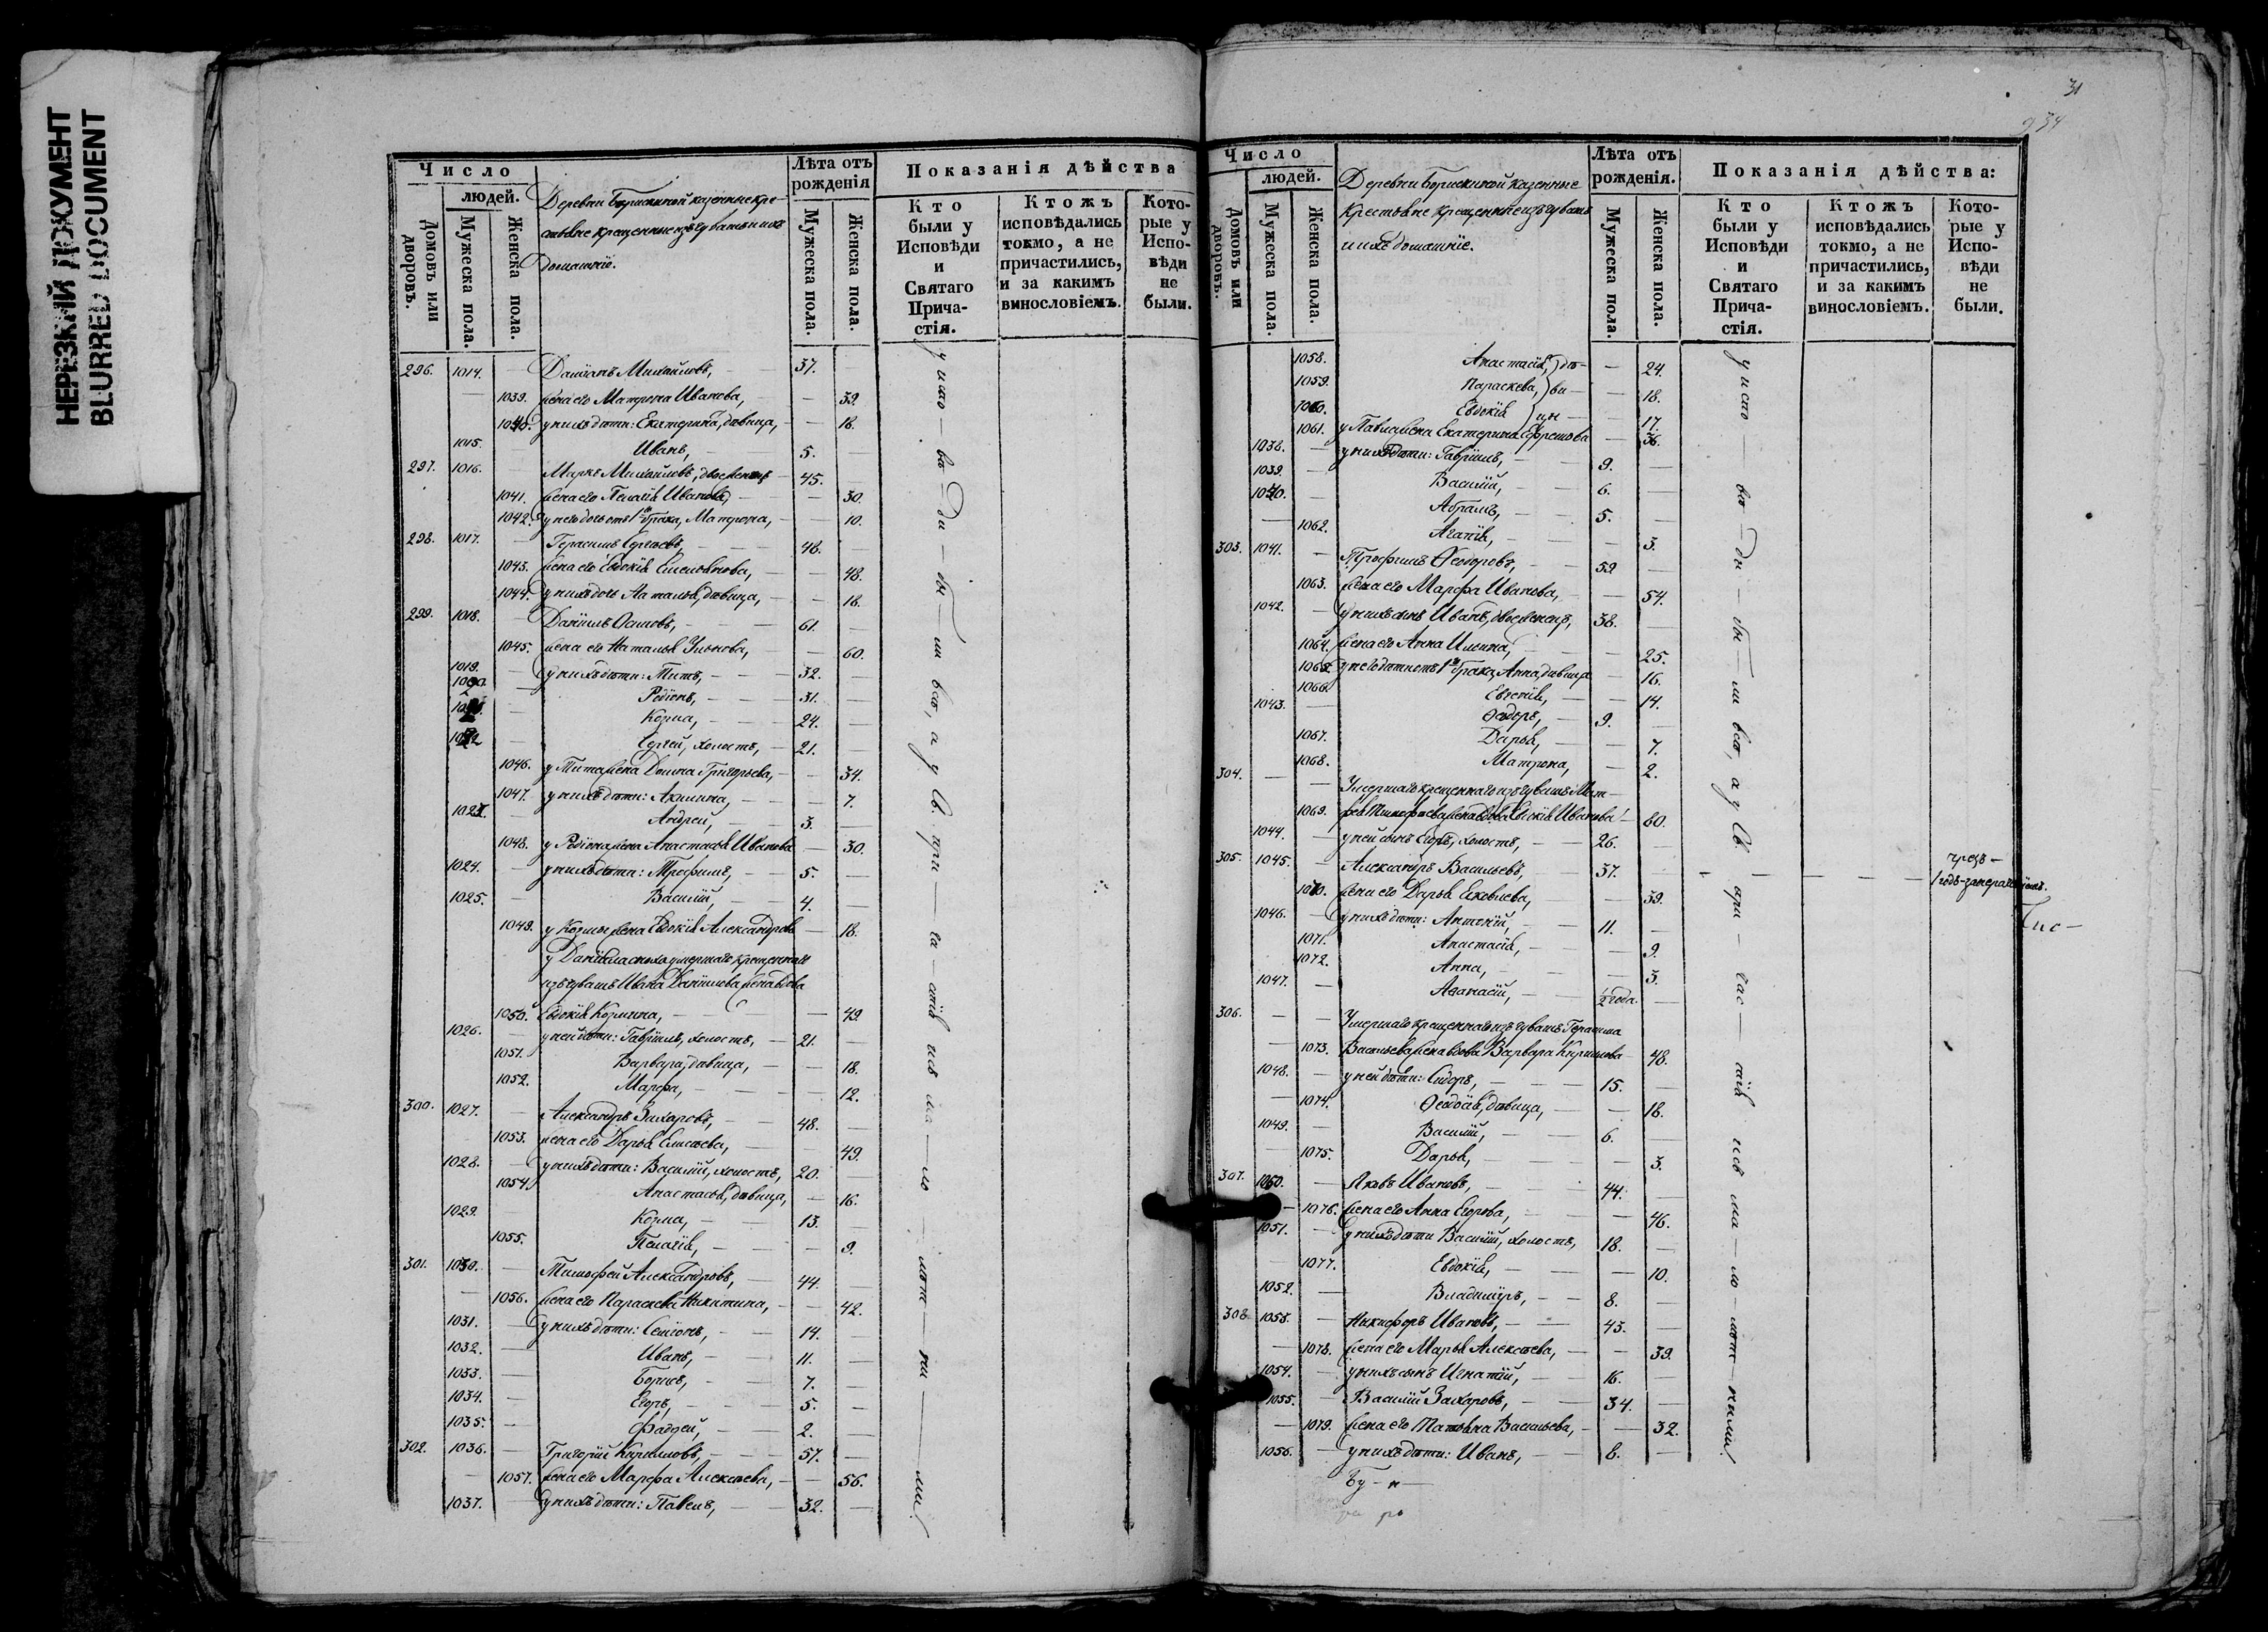 НЕРЕЗКИЙ ДОКУМЕНТ
BLURRED DOCUMENT
Число
людей.
Домовъ или дворовъ.
Мужеска пола.
Женска пола.
Деревни Борискиной казенные кре-
стьяне крещенные изъ чувашъ и ихъ
домашніе.
Лѣта отъ рожденія
Мужеска пола.
Женска пола.
Показанія дѣйства
Кто были у Исповѣди и Святаго Прича-стія.
Ктожъ исповѣдались токмо, а не причастились, и за какимъ винословіемъ.
Кото-рые у Испо-вѣди не были.
296. 1014. — Даміанъ Михайловъ, 37.
— 1039. жена его Матрона Иванова, — 39.
1040. у нихъ дѣти: Екатерина, дѣвица, — 18.
1015. Иванъ, 5. —
297. 1016. — Маркъ Михайловъ, двоеженецъ 45.
1041. жена его Пелагія Иванова, — 30.
1042. у него дочь отъ 1го брака, Матрона, — 10.
298. 1017. — Герасимъ Сергѣевъ, 48. —
1043. жена его Евдокія Емельянова, — 48.
1044. у нихъ дочь Наталья, дѣвица, — 18.
299. 1018. — Даніилъ Осиповъ, 61. —
1045. жена его Наталья Ульянова, — 60.
1019. — у нихъ дѣти: Титъ, 32. —
1020. — Родіонъ, 31. —
1021. — Козма, 24. —
1022 — Сергей, холостъ, 21. —
1046. у Тита жена Домна Григорьева, — 34.
1047. у нихъ дѣти: Акилина, — 7.
1023. — Андрей, 3. —
1048. у Родіона жена Анастасья Иванова — 30.
1024. — у нихъ дѣти: Трофимъ, 5. —
1025. — Василій, 4. —
1049. у Козмы жена Евдокія Александрова — 18.
у Даніила сноха умершаго крещеннаго
изъ чувашъ Ивана Даніилова жена вдова
1050. Евдокія Козмина, — 49.
1026. у ней дѣти: Гавріилъ, холостъ, 21. —
1051. Варвара, дѣвица, — 18.
1052. Марфа, — 12.
300. 1027. — Александръ Захаровъ, 48. —
1053. жена его Дарья Елисѣева, — 49.
1028. — у нихъ дѣти: Василій, холостъ, 20. —
1054. Анастасья, дѣвица, — 16.
1029. — Козма, 13. —
1055. Пелагія, — 9.
301. 1030. — Тимофей Александровъ, 44. —
— 1056. жена его Параскева Никитина, — 42.
1031. — у нихъ дѣти: Семіонъ, 14. —
1032. — Иванъ, 11. —
1033. — Борисъ, 7. —
1034. — Егоръ, 5. —
1035. — Фадей, 2. —
302. 1036. — Григорій Кириловъ, 57. —
— 1057. жена его Марфа Алексѣева, — 56.
1037. — у нихъ дѣти: Павелъ, 32. —
у испо — вѣ — ди — бы — ли всѣ, а у Св. при — ча — стія исъ ма — ло — лѣт — ни — ми.
31
934
Число
людей.
Домовъ или дворовъ.
Мужеска пола.
Женска пола.
Деревни Борискиной казенные
крестьяне крещенные изъ чувашъ
и ихъ домашніе.
Лѣта отъ рожденія.
Мужеска пола.
Женска пола.
Показанія дѣйства:
Кто были у Исповѣди и Святаго Прича-стія.
Ктожъ исповѣдались токмо, а не причастились, и за какимъ винословіемъ.
Кото-рые у Испо-вѣди не были.
1058. Анастасія, } дѣ- — 24.
1059. Параскева, } ви- — 18.
1060. Евдокія } цы — — 17.
1061. у Павла жена Екатерина Ефремова — 36.
1038. — у нихъ дѣти: Гавріилъ, 9. —
1039. — Василій, 6. —
1040. — Абрамъ, 5. —
— 1062. Агапія, — 3.
303. 1041. — Трофимъ Ѳеодоровъ, 59 —
1063. жена его Марфа Иванова, — 54.
1042. — у нихъ сынъ Иванъ, двоеженецъ, 38. —
1064. жена его Анна Ильина, — 25.
1065. у него дѣти отъ 1го брака, Анна, дѣвица — 16.
1066. Евгенія, — 14.
1043. — Ѳедоръ, 9. —
1067. Дарья, — 7.
1068. Матрона, — 2.
304. — — Умершаго крещеннаго изъ чувашъ Мат-
1069. вдова Иванова — 60.
1044. — у ней сынъ Егоръ, холостъ, 26. —
305. 1045. — Александръ Васильевъ, 37. — чрезъ —
1070. жена его Дарья Яковлева, — 39.
1046. — у нихъ дѣти: Антоній, 11. —
1071. Анастасія, — 9.
1072. Анна, — 3.
1047. — Аѳанасій, ½ года. —
306. — — Умершаго крещеннаго изъ чувашъ Герасима
— 1073. Васильева жена вдова Варвара Кирилова — 48.
1048. — у ней дѣти: Сидоръ, 15. —
— 1074. Ѳеодосія, дѣвица, — 18.
1049. — Василій, 6. —
— 1075. Дарья, — 3.
307. 1050. — Яковъ Ивановъ, 44. —
— 1076. жена его Анна Егорова, — 46.
1051. — у нихъ дѣти Василій, холостъ, 18. —
1077. Евдокія, — 10.
1052. — Владиміръ, 8. —
308 1053. — Никифоръ Ивановъ, 43. —
— 1078. жена его Марья Алексѣева, — 39.
1054. — у нихъ сынъ Игнатій, 16. —
1055. — Василій Захаровъ, 34. —
— 1079. жена его Татьяна Васильева, — 32.
1056. — у нихъ дѣти: Иванъ, 8. —
у испо — вѣ — ди — бы — ли всѣ, а у Св. при — час — тія исъ ма — ло — лѣт — ними.